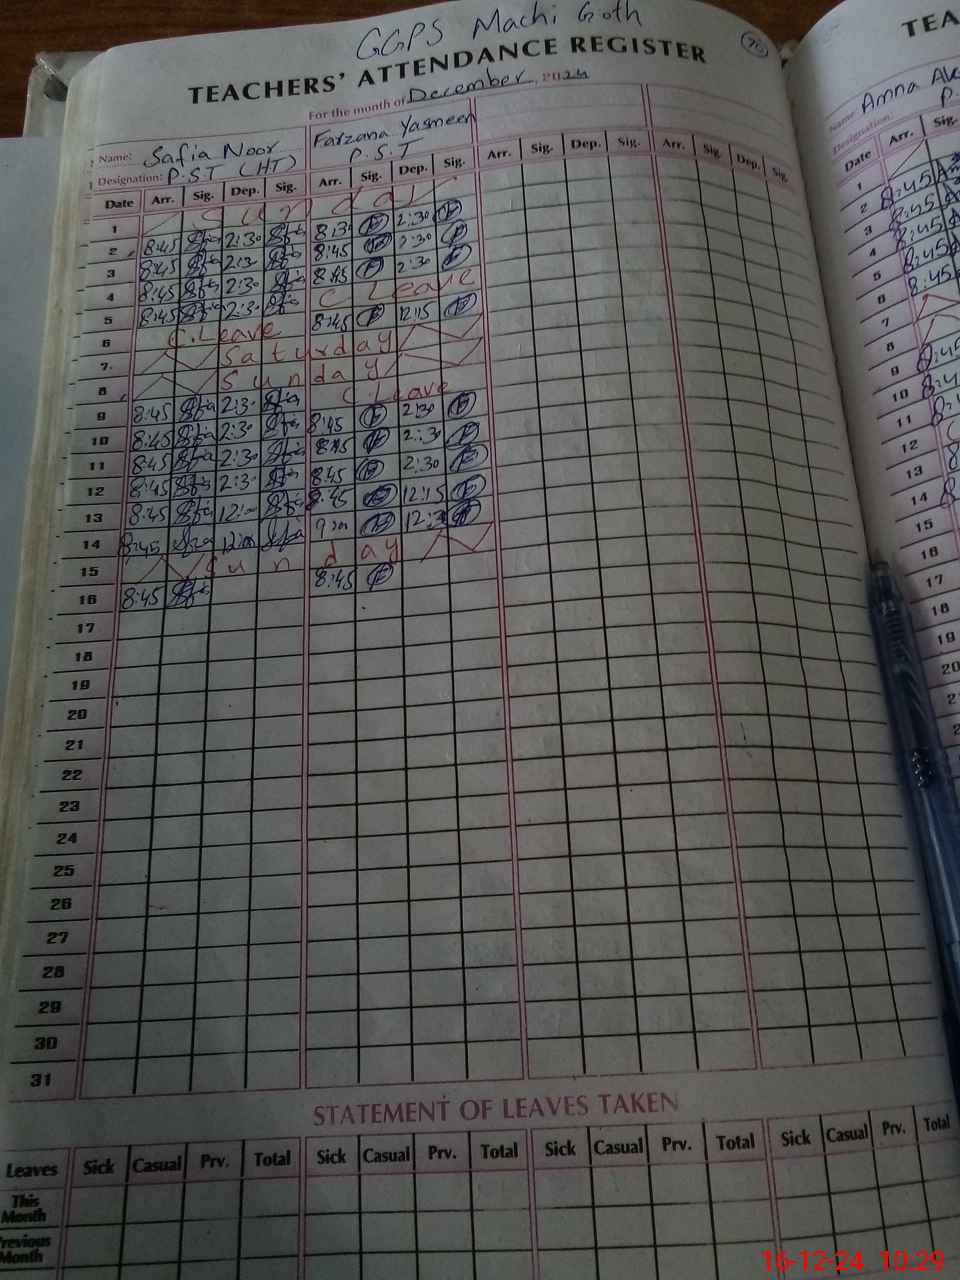 GGPS Machi Goth
76
TEACHERS' ATTENDANCE REGISTER
For the month of December, 2024
Name: Safia Noor Farzana Yasmeen
Designation: P.S.T (HT) P.S.T
Date Arr. Sig. Dep. Sig. Arr. Sig. Dep. Sig. Arr. Sig. Dep. Sig. Arr. Sig. Dep. Sig.
1 Sunday
2 8:45 2:30 8:30 2:30
3 8:45 2:30 8:45 2:30
4 8:45 2:30 8:45 2:30
5 8:45 2:30 C Leave
6 C.Leave 8:45 12:15
7 Saturday
8 Sunday
9 8:45 2:30 C.Leave
10 8:45 2:30 8:45 2:30
11 8:45 2:30 8:45 2:30
12 8:45 2:30 8:45 2:30
13 8:45 12:00 8:45 12:15
14 8:45 12:00 9:00 12:30
15 Sunday
16 8:45 8:45
17
18
19
20
21
22
23
24
25
26
27
28
29
30
31
STATEMENT OF LEAVES TAKEN
Leaves Sick Casual Prv. Total Sick Casual Prv. Total Sick Casual Prv. Total Sick Casual Prv. Total
This Month
Previous Month
TEA
Name: Amna
Designation: P.
Date Arr. Sig.
1
2 8:45
3 8:45
4 8:45
5 8:45
6 8:45
7
8
9 8:45
10
11
12
13
14
15
16
17
18
19
20
16-12-24 10:29